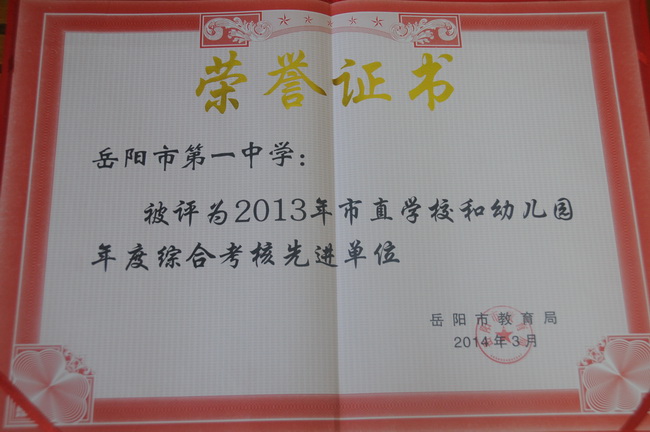 荣誉证书
岳阳市第一中学：
被评为2013年市直学校和幼儿园
年度综合考核先进单位
岳阳市教育局
2014年3月